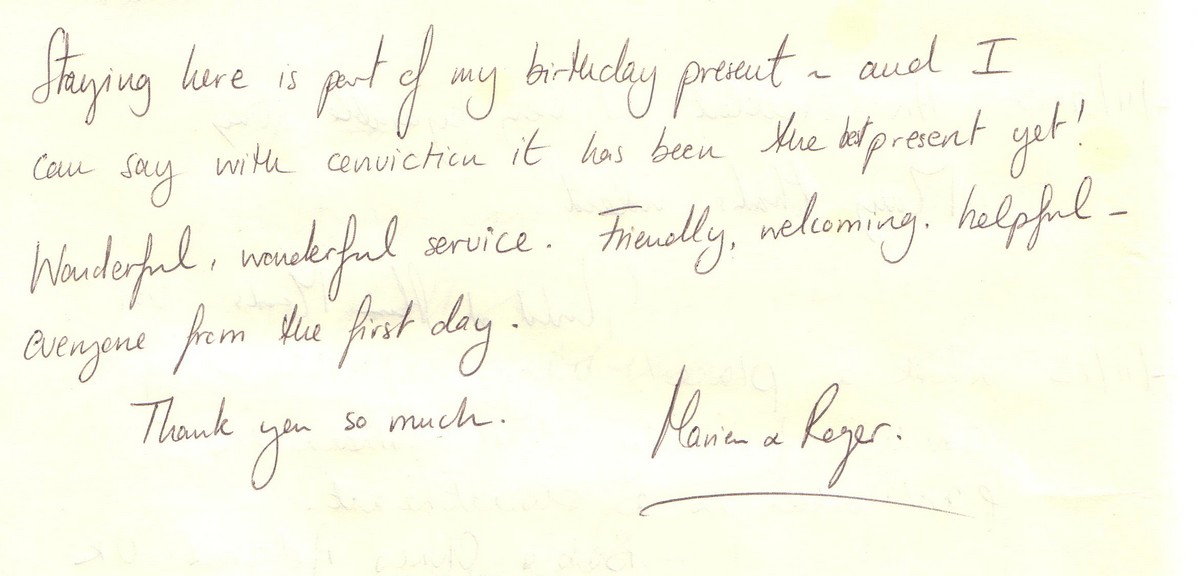 Staying here is part of my birthday present ~ and I
can say with conviction it has been the best present yet!
Wonderful, wonderful service. Friendly, welcoming. helpful –
everyone from the first day.
Thank you so much.
Marion & Roger.